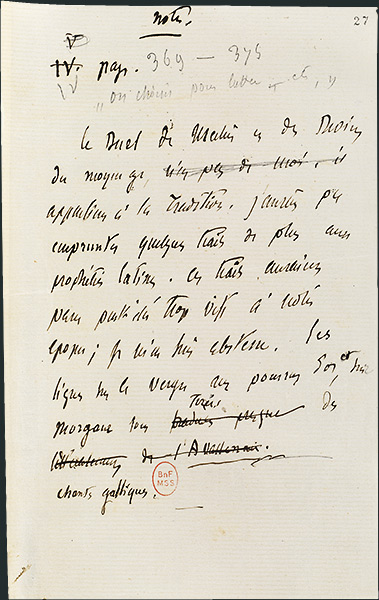 note.
27
V
IV. pag. 369 — 375
IV
„on choisit pour lutter etc, »
Le Duel de Merlin et des Devins
du moyen age, n'est pas de moi. il
appartient à la tradition. j'aurais pu
emprunter quelques traits de plus aux
prophéties latines. Ces traits auraient
paru trop vifs à notre
epoque; je m'en suis abstenu. Les
lignes sur le verger des pommiers d'or, et sur
morgane sont tirées des
de l'
chants galliques.
BnF
MSS